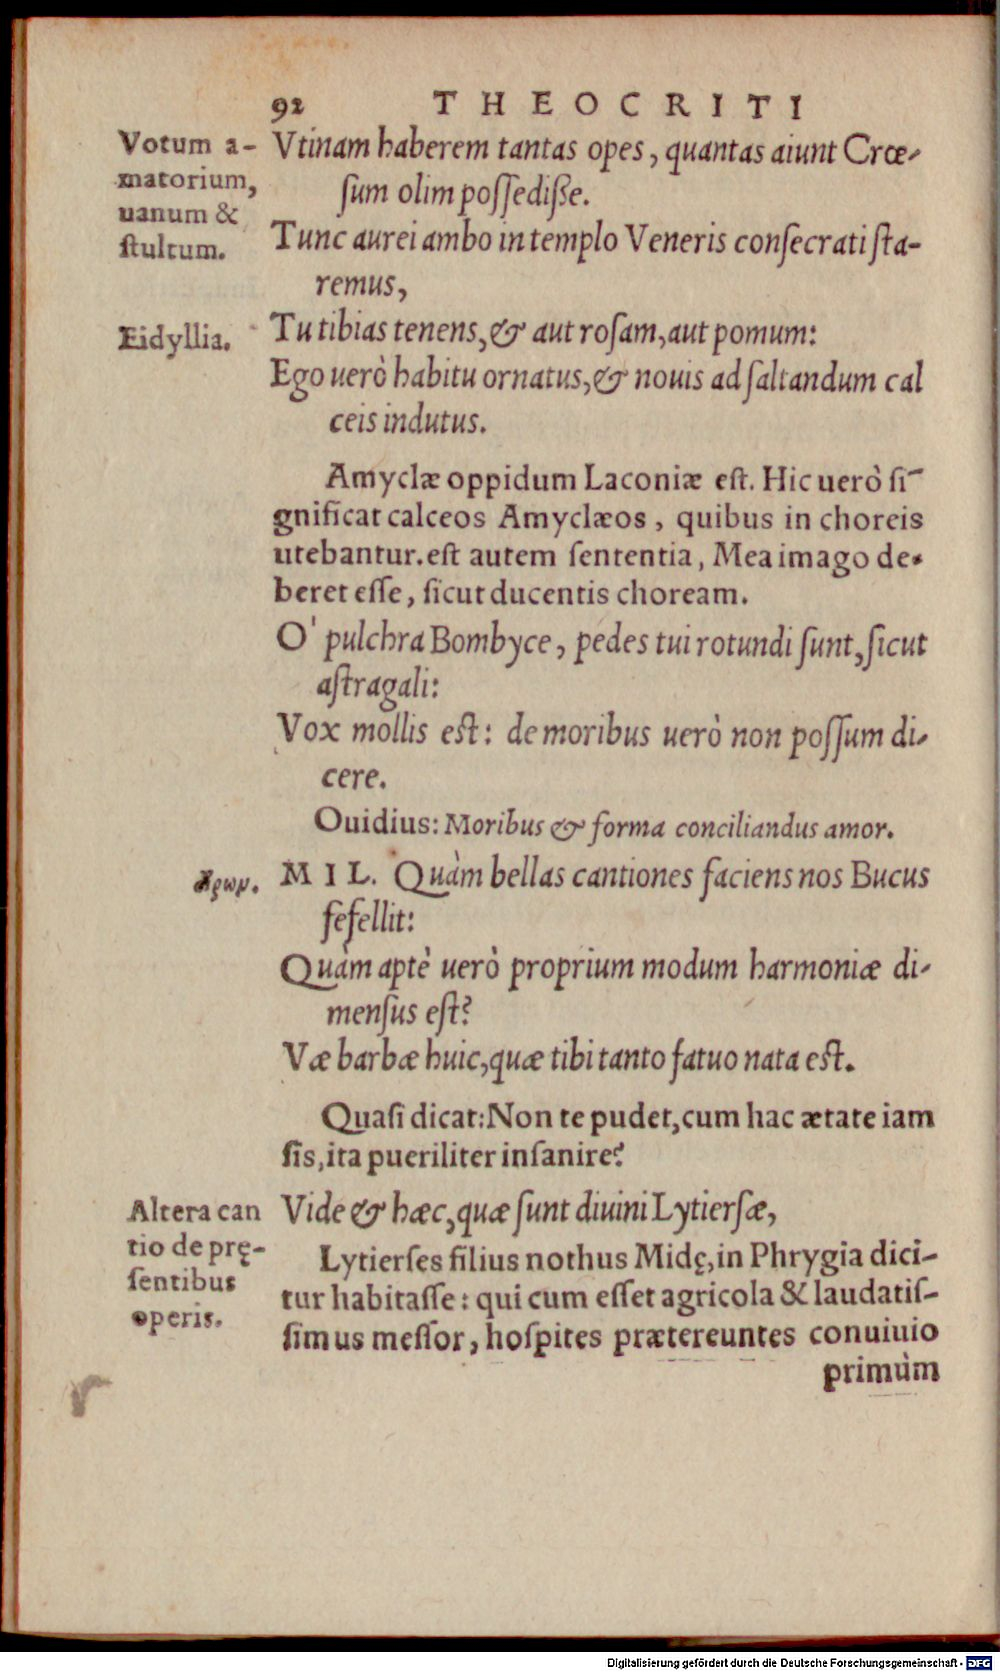 92 THEOCRITI
Votum a-
matorium,
uanum &
ſtultum.
Vtinam haberem tantas opes, quantas aiunt Crœ-
ſum olim poſſediſſe.
Tunc aurei ambo in templo Veneris conſecrati ſta-
remus,
Eidyllia.
Tu tibias tenens, & aut roſam, aut pomum:
Ego uerò habitu ornatus, & nouis ad ſaltandum cal
ceis indutus.
Amyclæ oppidum Laconiæ eſt. Hic uerò ſi-
gnificat calceos Amyclæos, quibus in choreis
utebantur. eſt autem ſententia, Mea imago de-
beret eſſe, ſicut ducentis choream.
O' pulchra Bombyce, pedes tui rotundi ſunt, ſicut
aſtragali:
Vox mollis eſt: de moribus uerò non poſſum di-
cere.
Ouidius: Moribus & forma conciliandus amor.
MIL. Quàm bellas cantiones faciens nos Bucus
fefellit:
Quàm aptè uerò proprium modum harmoniæ di-
menſus eſt?
Væ barbæ huic, quæ tibi tanto fatuo nata eſt.
Quaſi dicat: Non te pudet, cum hac ætate iam
ſis, ita pueriliter inſanire?
Altera can
tio de prę-
ſentibus
operis.
Vide & hæc, quæ ſunt diuini Lytierſæ,
Lytierſes filius nothus Midę, in Phrygia dici-
tur habitaſſe: qui cum eſſet agricola & laudatiſ-
ſimus meſſor, hoſpites prætereuntes conuiuio
primùm
Digitalisierung gefördert durch die Deutsche Forschungsgemeinschaft - DFG